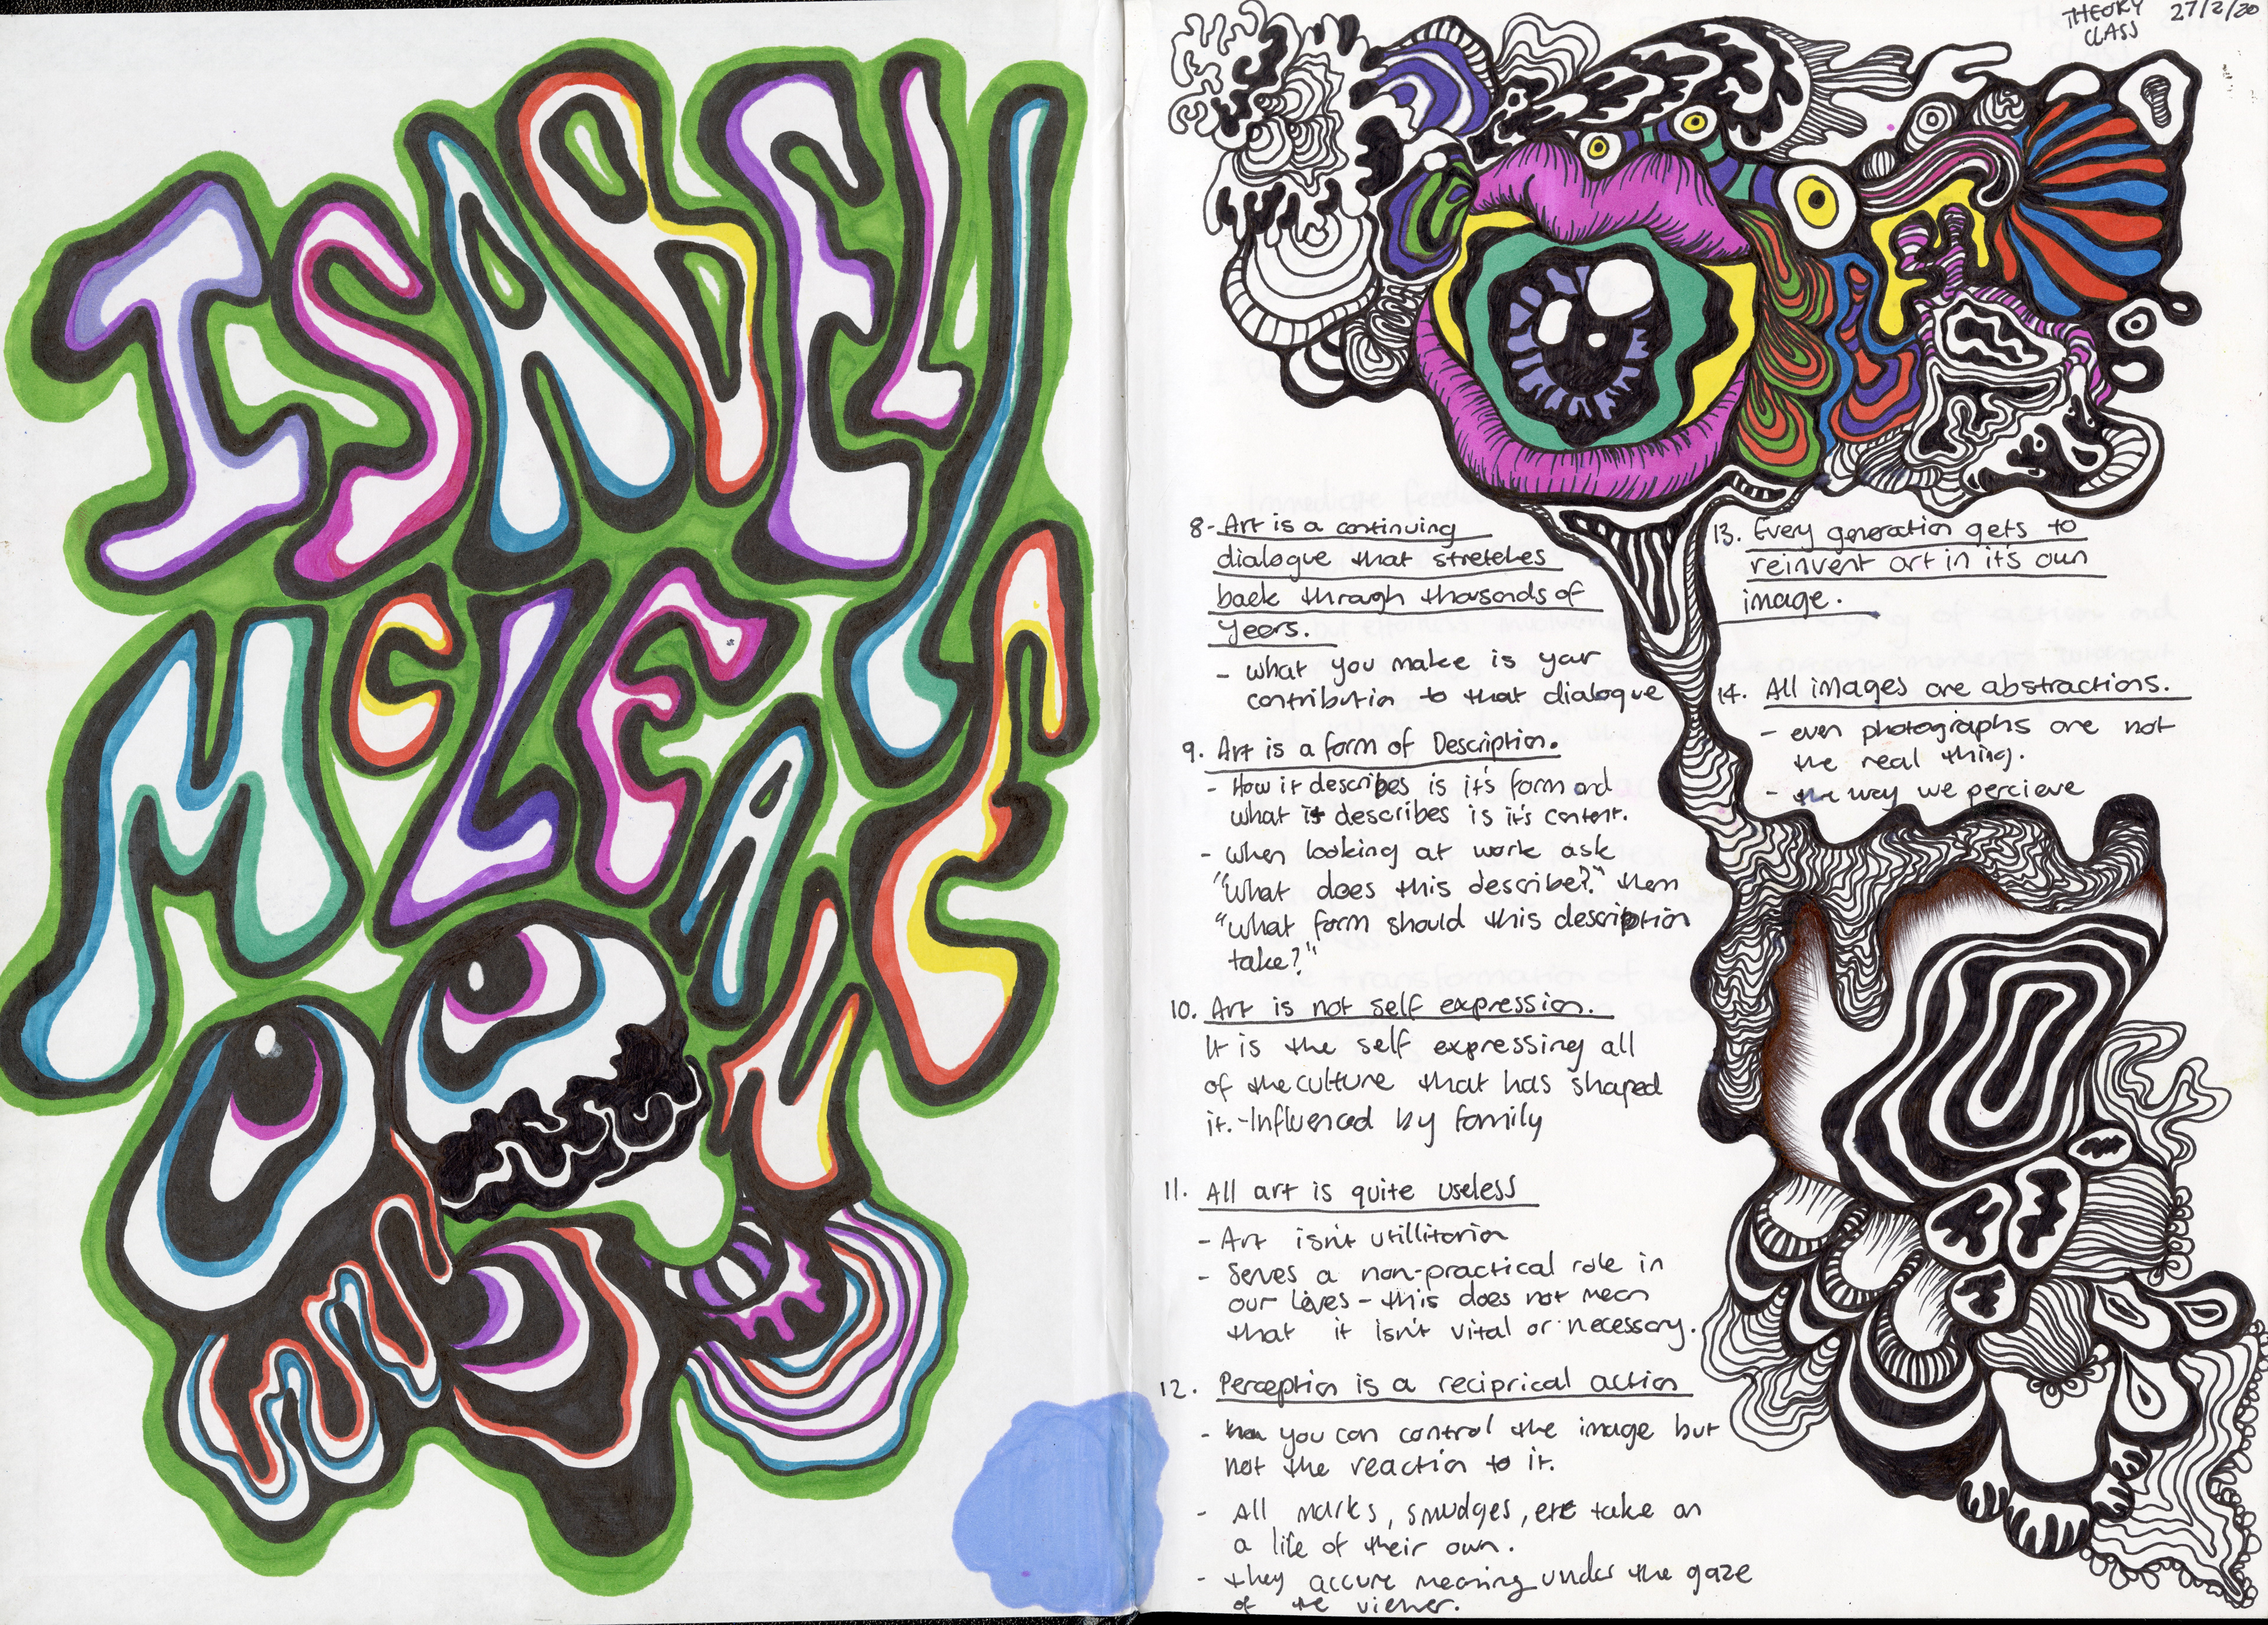 ISABELLE
MCLEAN
THEORY 27/2/20
CLASS
8- Art is a continuing
dialogue that stretches
back through thosands of
years.
- what you make is your
contribution to that dialogue
9. Art is a form of Description.
- How it describes is it's form and
what it describes is it's content.
- when looking at work ask
"What does this describe?" then
"what form should this description
take?"
10. Art is not self expression.
It is the self expressing all
of the culture that has shaped
it. - Influenced by family
11. All art is quite useless
- Art isn't utillitarian
- Serves a non-practical role in
our lives - this does not mean
that it isn't vital or necessary.
12. Perception is a reciprical action
- you can control the image but
not the reaction to it.
- All marks, smudges, etc take on
a life of their own.
- they accure meaning under the gaze
of the viewer.
13. Every generation gets to
reinvent art in it's own
image.
14. All images are abstractions.
- even photographs are not
the real thing.
- the way we percieve